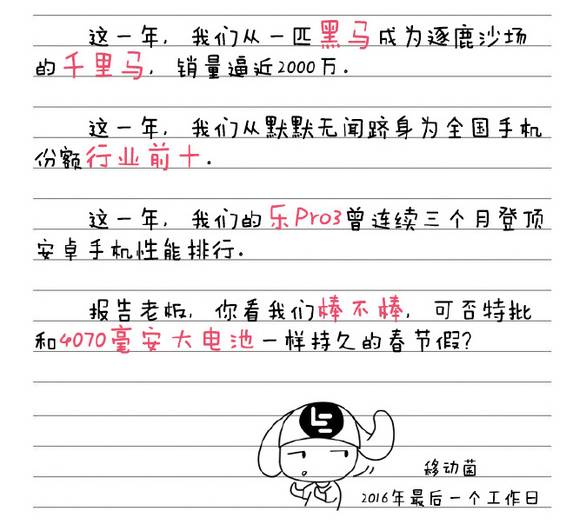 这一年，我们从一匹黑马成为逐鹿沙场
的千里马，销量逼近2000万.
这一年，我们从默默无闻跻身为全国手机
份额行业前十.
这一年，我们的乐Pro3曾连续三个月登顶
安卓手机性能排行.
报告老板，你看我们棒不棒，可否特批
和4070毫安大电池一样持久的春节假？
移动菌
2016年最后一个工作日